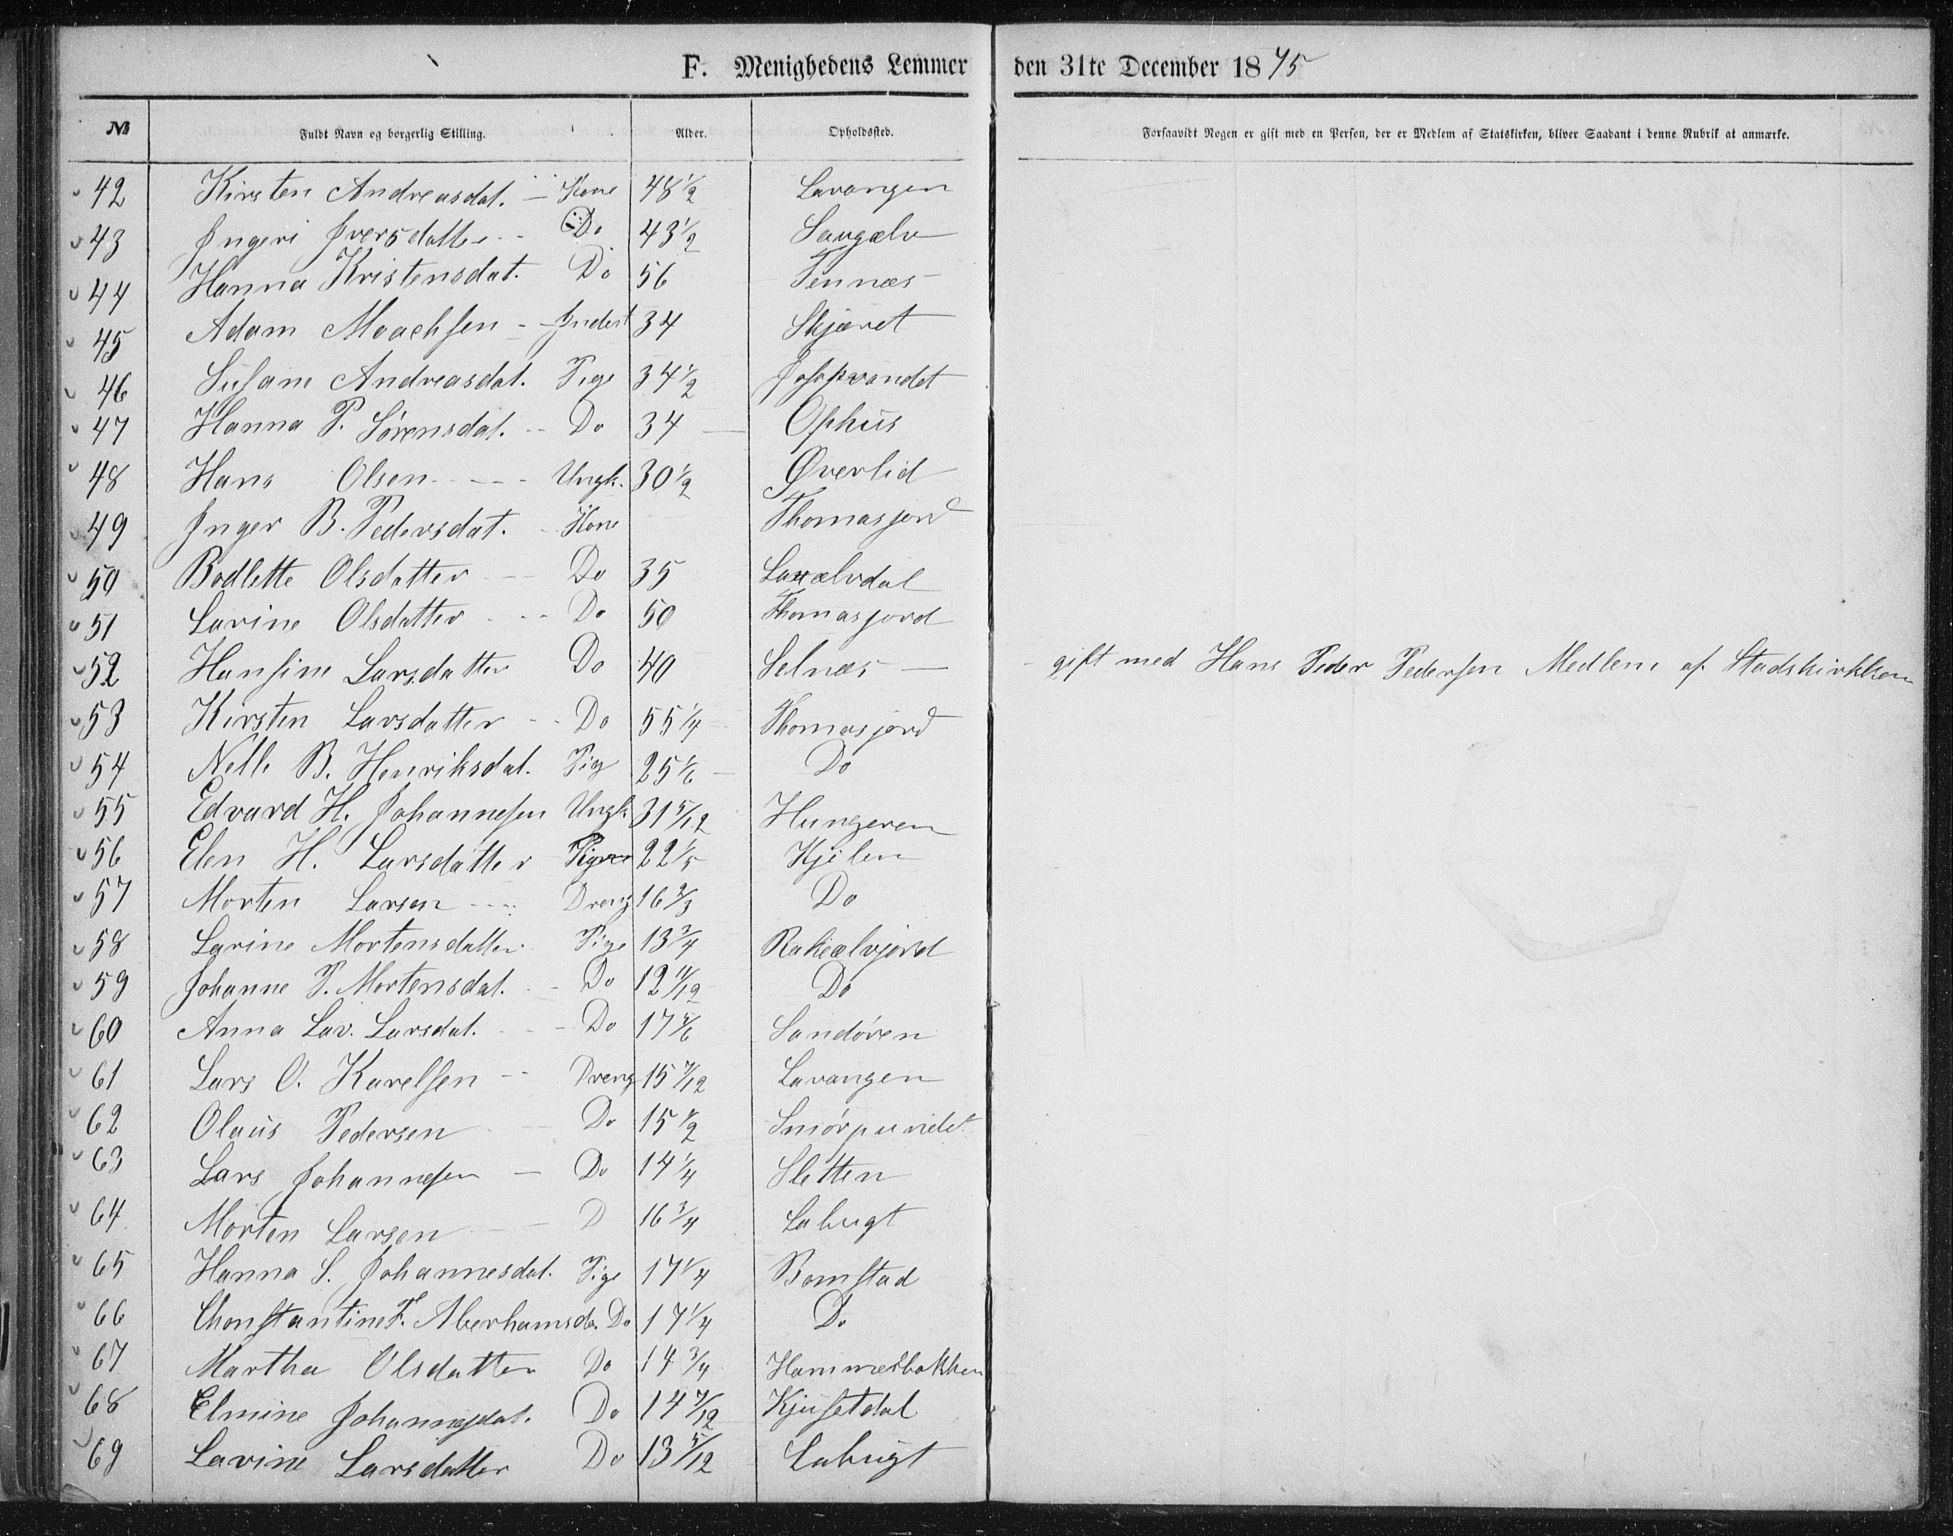 F. Menighedens Lemmer den 31te December 1875
No Fuldt Navn og borgerlig Stilling. Alder. Opholdssted. Forsaavidt Nogen er gift med en Person, der er Medlem af Statskirken, bliver Saadant i denne Rubrik at anmærke.
42 Kirsten Andreasdat. - Kone 48 1/2 Lavangen
43 Ingeri Iversdatter - Do 43 1/2
44 Hanna Kristensdat. Do 56 Tennæs
45 Adam Moachsen - Inderst 34 Skjæret
46 Susane Andreasdat. Pige 34 1/2
47 Hanna P. Sørensdat. - Do 34 Ophus
48 Hans Olsen - Ungk. 30 1/2 Øverlid
49 Inger B. Pedersdat. - Kone Thomasjord
50 Bodlette Olsdatter - Do 35 Laxælvdal
51 Lavine Olsdatter - Do 50 Thomasjord
52 Hansine Larsdatter Do 40 Selnæs - gift med Hans Peder Pedersen Medlem af Stadskirkken
53 Kirsten Larsdatter - Do 55 1/4 Thomasjord
54 Nelle B. Henriksdat. Pig 25 1/6 Do
55 Edvard H. Johannesen Ungk. 31 5/12 Hungeren
56 Elen H. Larsdatter Pige 22 1/5 Kjølen
57 Morten Larsen - Dreng 16 2/3 Do
58 Lavine Mortensdatter Pige 13 3/4 Rakiælvjord
59 Johanne P. Mortensdat. - Do 12 11/12 Do
60 Anna Lav. Larsdat. - Do 17 5/6 Sandøren
61 Lars O. Karelsen - Dreng 15 7/12 Lavangen
62 Olaus Pedersen Do 15 1/2 Smørpundet
63 Lars Johannesen - Do 14 1/4 Sletten
64 Morten Larsen - D 16 3/4 Labugt
65 Hanna S. Johannesdat. Pige 17 1/4 Bomstad
66 Chonstantine F. Aberhamsda. Do 17 1/4 Do
67 Martha Olsdatter Do 14 3/4 Hammerbakken
68 Elmine Johannesdat. Do 14 7/12 Kjusetdal
69 Lavine Larsdatter Do 13 5/12 Labugt